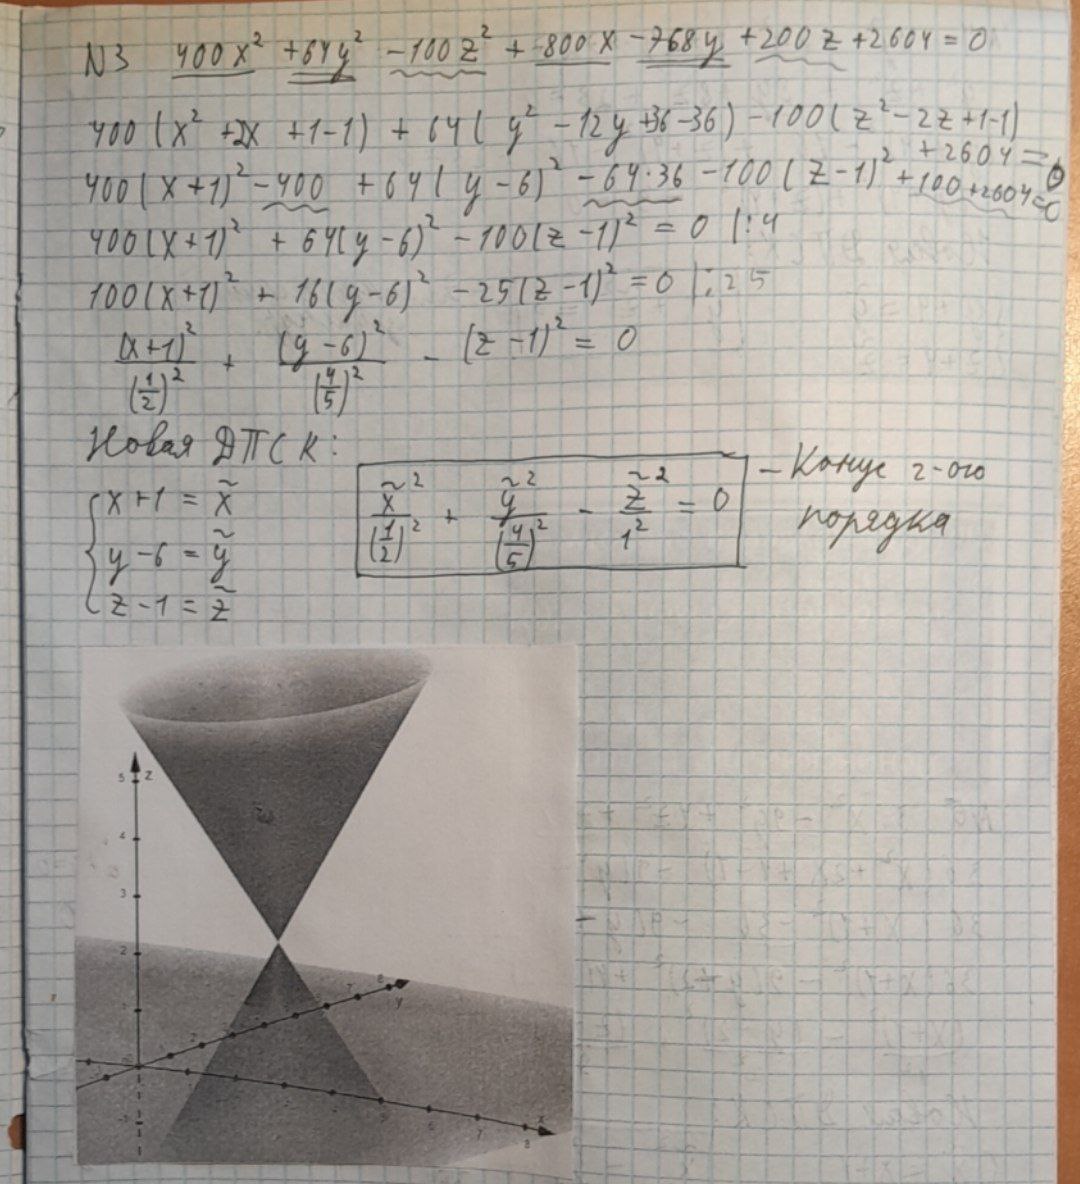 N3 400x² + 64y² - 100z² + 800x - 768y + 200z + 2604 = 0
400(x² + 2x + 1 - 1) + 64(y² - 12y + 36 - 36) - 100(z² - 2z + 1 - 1) + 2604 = 0
400(x+1)² - 400 + 64(y-6)² - 64·36 - 100(z-1)² + 100 + 2604 = 0
400(x+1)² + 64(y-6)² - 100(z-1)² = 0 |:4
100(x+1)² + 16(y-6)² - 25(z-1)² = 0 |:25
(x+1)²/(1/2)² + (y-6)²/(4/5)² - (z-1)² = 0
Новая ДПСК:
{ x+1 = x̃
y-6 = ỹ
z-1 = z̃
x̃²/(1/2)² + ỹ²/(4/5)² - z̃²/1² = 0
- Конус 2-ого
порядка
5 z
4
3
2
8
7
y
2
-1
5
6
7
8
x